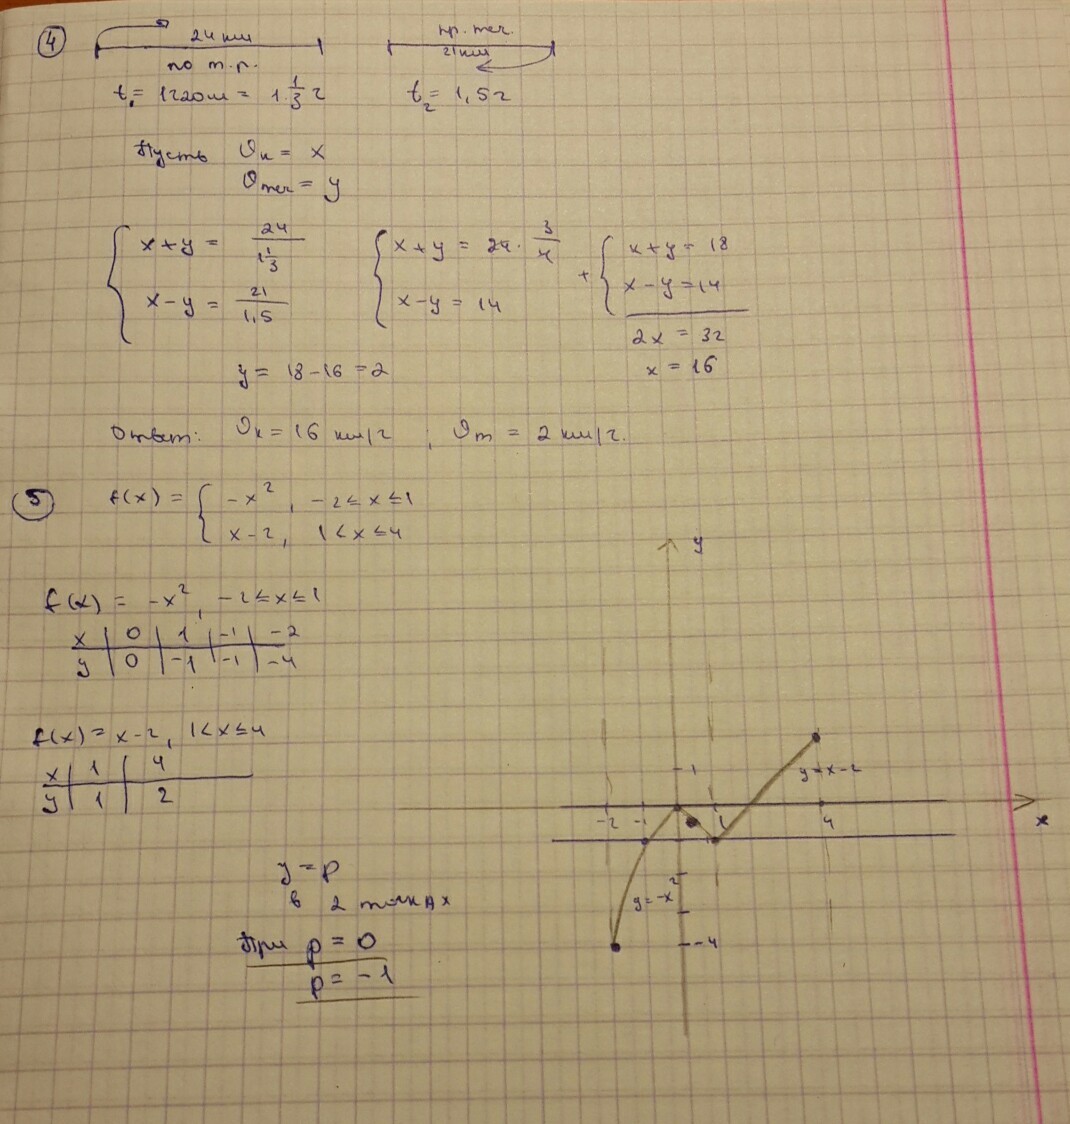 4
24 км
по т.р.
t₁ = 1ч20м = 1 1/3 ч
пр. теч.
21 км
t₂ = 1,5ч
Пусть ϑк = x
ϑтеч = y
{ x+y = 24 / 1 1/3
x-y = 21 / 1,5
{ x+y = 24 · 3/4
x-y = 14
+ { x+y = 18
x-y = 14
2x = 32
x = 16
y = 18-16 = 2
Ответ: ϑк = 16 км/ч ; ϑт = 2 км/ч.
5
f(x) = { -x², -2≤x≤1
x-2, 1<x≤4
f(x) = -x², -2≤x≤1
x | 0 | 1 | -1 | -2
y | 0 | -1 | -1 | -4
f(x) = x-2, 1<x≤4
x | 1 | 4
y | 1 | 2
y = p
в 2 точках
При p = 0
p = -1
y
1
y=x-2
-2 -1 1 4 x
y=-x²
-4